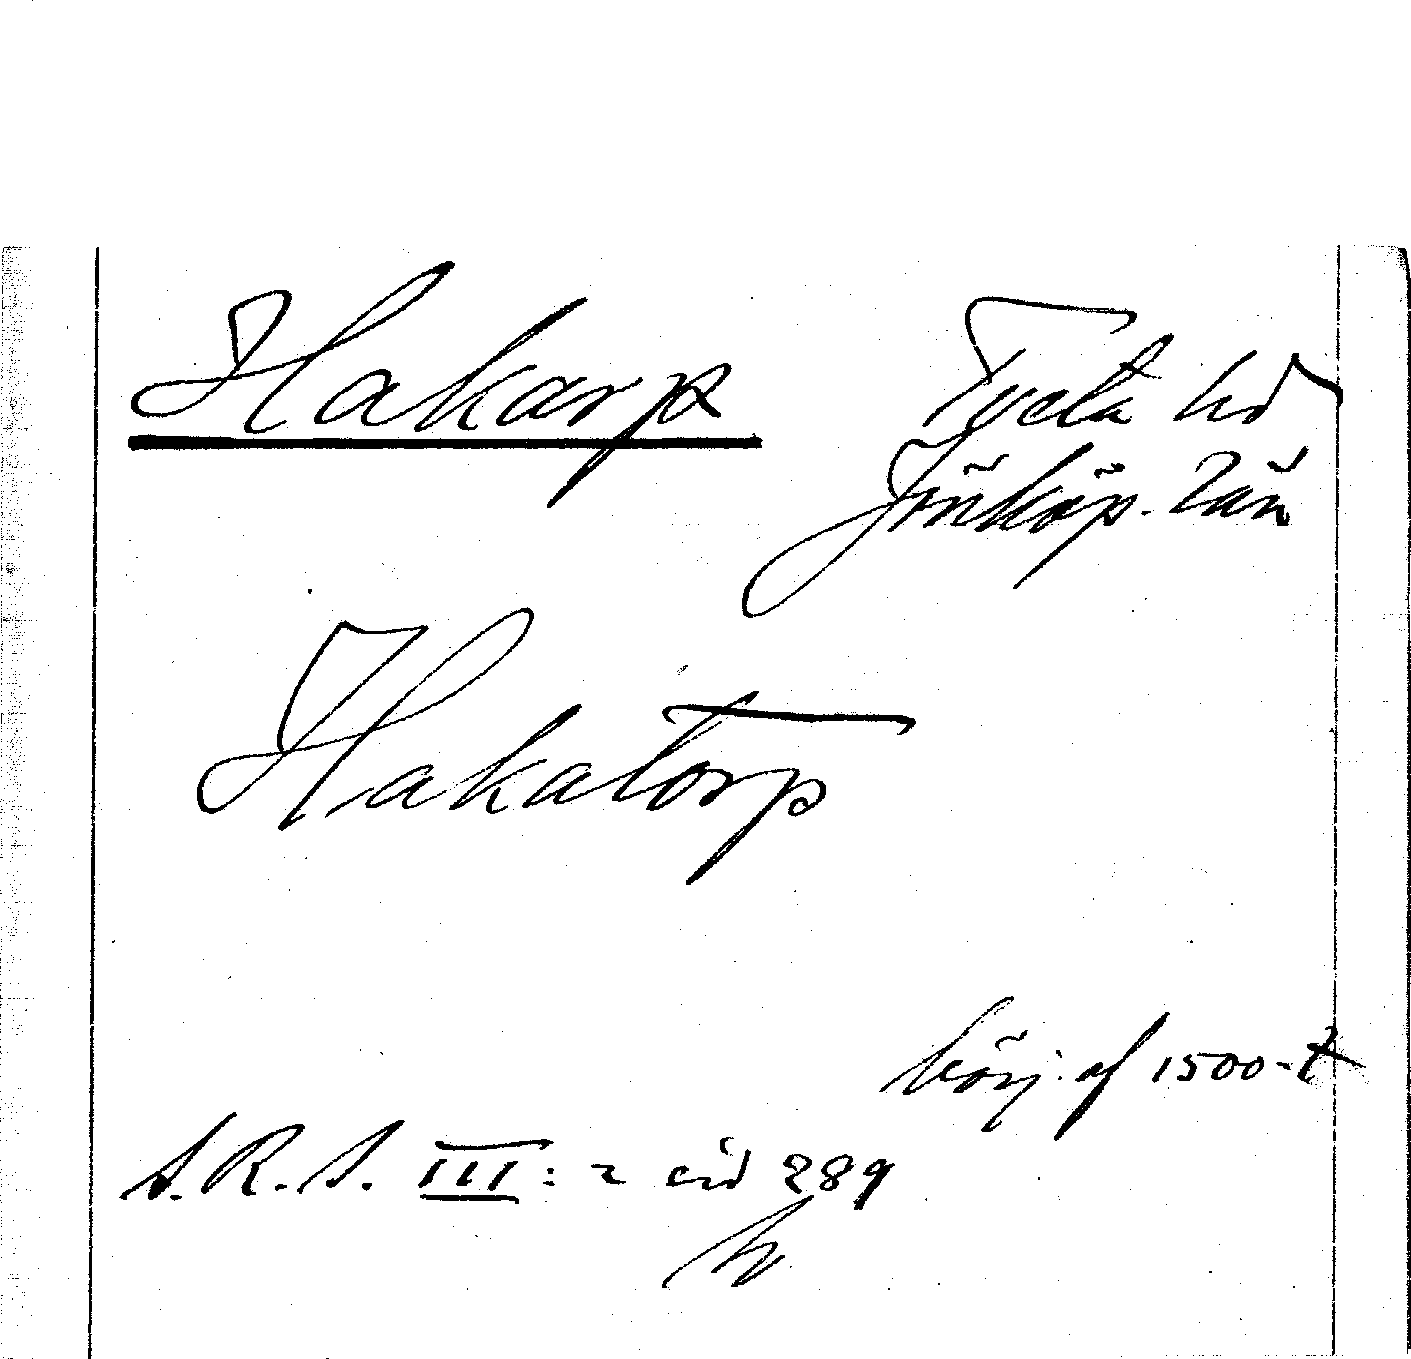 Hakarp
Tveta hd
Jönköp. län
Hakatorp
börj. af 1500-t
S. R. S. III: 2 sid 289